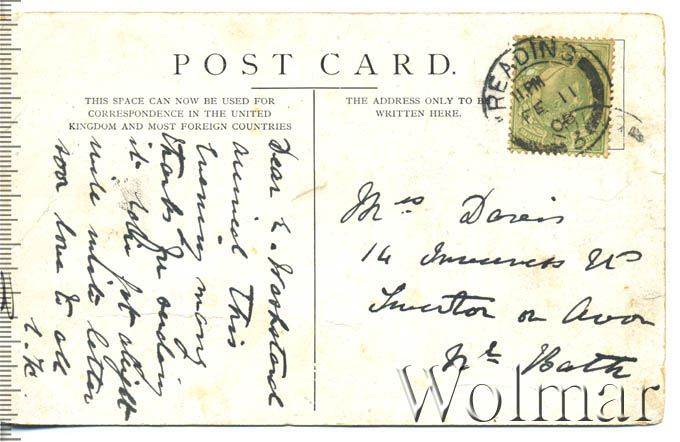 POST CARD.
THIS SPACE CAN NOW BE USED FOR
CORRESPONDENCE IN THE UNITED
KINGDOM AND MOST FOREIGN COUNTRIES
THE ADDRESS ONLY TO BE
WRITTEN HERE.
READING
1 PM
FE 11
Dear
arrived this
evening many
thanks for sending
it
write
letter
soon love to all
Mrs Davis
14 Inverness
on Avon
Nr Bath
Wolmar